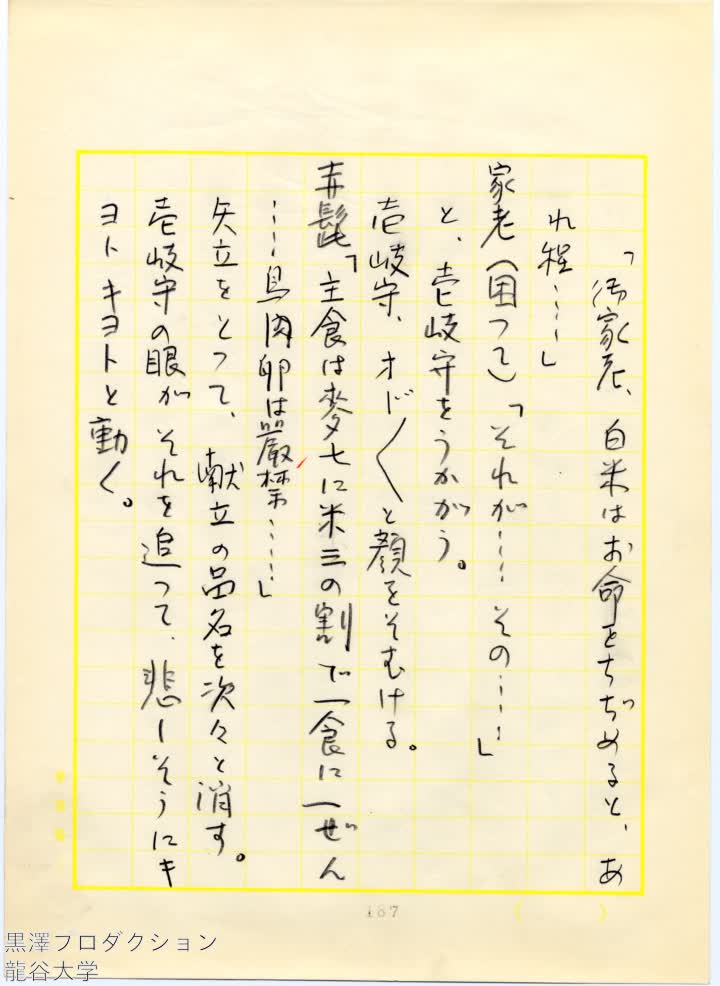 「御家老、白米はお命をちぢめると、あ
れ程……」
家老（困つて）「それが……その……」
と、壱岐守をうかがう。
壱岐守、オド〱と顔をそむける。
赤髭「主食は麥七に米三の割で一食に一ぜん
……鳥肉卵は嚴禁……」
矢立をとつて、献立の品名を次々と消す。
壱岐守の眼がそれを追つて、悲しそうにキ
ヨトキヨトと動く。
187
（　　）
黒澤プロダクション
龍谷大学